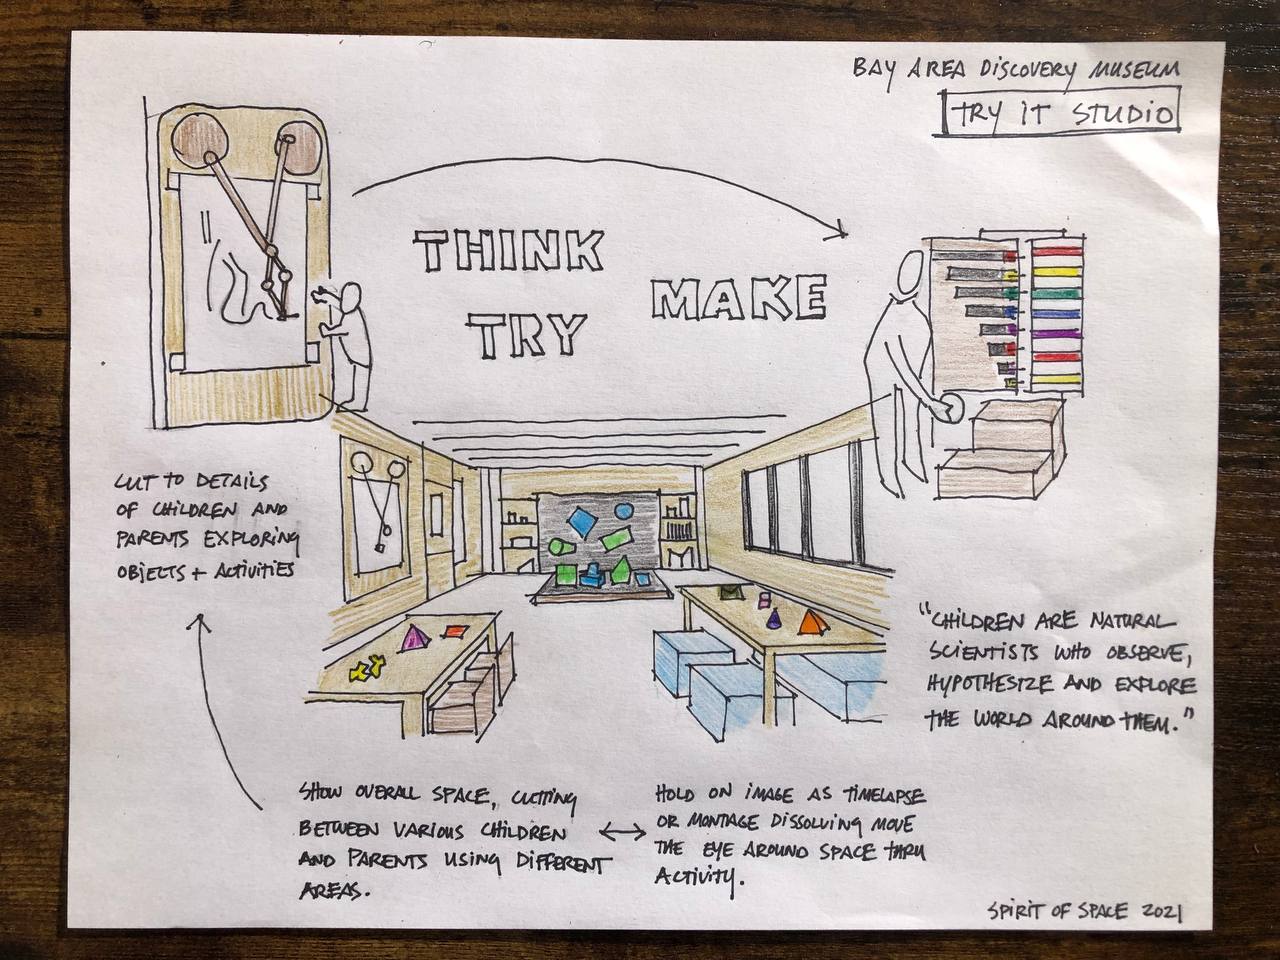 BAY AREA DISCOVERY MUSEUM
TRY IT STUDIO
THINK
MAKE
TRY
CUT TO DETAILS
OF CHILDREN AND
PARENTS EXPLORING
OBJECTS + ACTIVITIES
"CHILDREN ARE NATURAL
SCIENTISTS WHO OBSERVE,
HYPOTHESIZE AND EXPLORE
THE WORLD AROUND THEM."
SHOW OVERALL SPACE, CUTTING
BETWEEN VARIOUS CHILDREN
AND PARENTS USING DIFFERENT
AREAS.
HOLD ON IMAGE AS TIMELAPSE
OR MONTAGE DISSOLVING MOVE
THE EYE AROUND SPACE THRU
ACTIVITY.
SPIRIT OF SPACE 2021